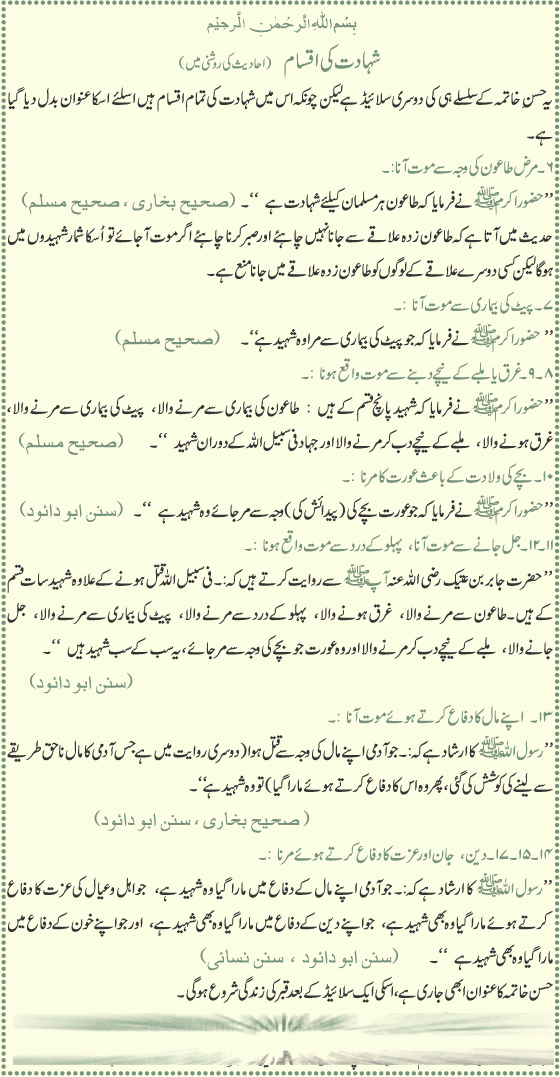 بِسْمِ اللهِ الرَّحْمٰنِ الرَّحِيْمِ
شہادت کی اقسام (احادیث کی روشنی میں)
یہ حسنِ خاتمہ کے سلسلے ہی کی دوسری سلائیڈ ہے لیکن چونکہ اس میں شہادت کی تمام اقسام ہیں اسلئے اسکا عنوان بدل دیا گیا
ہے۔
۶۔ مرض طاعون کی وجہ سے موت آنا:۔
’’حضور اکرم ﷺ نے فرمایا کہ طاعون ہر مسلمان کیلئے شہادت ہے ‘‘۔ (صحیح بخاری ، صحیح مسلم)
حدیث میں آتا ہے کہ طاعون زدہ علاقے سے جانا نہیں چاہئے اور صبر کرنا چاہئے اگر موت آ جائے تو اُسکا شمار شہیدوں میں
ہوگا لیکن کسی دوسرے علاقے کے لوگوں کو طاعون زدہ علاقے میں جانا منع ہے۔
۷۔ پیٹ کی بیماری سے موت آنا :۔
’’حضور اکرم ﷺ نے فرمایا کہ جو پیٹ کی بیماری سے مرا وہ شہید ہے‘‘۔ (صحیح مسلم)
۸۔۹۔ غرق یا ملبے کے نیچے دبنے سے موت واقع ہونا :۔
’’حضور اکرم ﷺ نے فرمایا کہ شہید پانچ قسم کے ہیں : طاعون کی بیماری سے مرنے والا، پیٹ کی بیماری سے مرنے والا،
غرق ہونے والا، ملبے کے نیچے دب کر مرنے والا اور جہاد فی سبیل اللہ کے دوران شہید ‘‘۔ (صحیح مسلم)
۱۰۔ بچے کی ولادت کے باعث عورت کا مرنا :۔
’’حضور اکرم ﷺ نے فرمایا کہ جو عورت بچے کی (پیدائش کی) وجہ سے مر جائے وہ شہید ہے ‘‘۔ (سنن ابو دائود)
۱۱۔۱۲۔ جل جانے سے موت آنا، پہلو کے درد سے موت واقع ہونا :۔
’’حضرت جابر بن عتیک رضی اللہ عنہ آپ ﷺ سے روایت کرتے ہیں کہ:۔ فی سبیل اللہ قتل ہونے کے علاوہ شہید سات قسم
کے ہیں۔ طاعون سے مرنے والا، غرق ہونے والا، پہلو کے درد سے مرنے والا، پیٹ کی بیماری سے مرنے والا، جل
جانے والا، ملبے کے نیچے دب کر مرنے والا اور وہ عورت جو بچے کی وجہ سے مر جائے، یہ سب کے سب شہید ہیں ‘‘۔
(سنن ابو دائود)
۱۳۔ اپنے مال کا دفاع کرتے ہوئے موت آنا :۔
’’رسول اللہ ﷺ کا ارشاد ہے کہ:۔ جو آدمی اپنے مال کی وجہ سے قتل ہوا (دوسری روایت میں ہے جس آدمی کا مال ناحق طریقے
سے لینے کی کوشش کی گئی، پھر وہ اس کا دفاع کرتے ہوئے مارا گیا) تو وہ شہید ہے‘‘۔
(صحیح بخاری ، سنن ابو دائود)
۱۴۔۱۵۔۱۷۔ دین، جان اور عزت کا دفاع کرتے ہوئے مرنا :۔
’’رسول اللہ ﷺ کا ارشاد ہے کہ:۔ جو آدمی اپنے مال کے دفاع میں مارا گیا وہ شہید ہے، جو اہل و عیال کی عزت کا دفاع
کرتے ہوئے مارا گیا وہ بھی شہید ہے، جو اپنے دین کے دفاع میں مارا گیا وہ بھی شہید ہے، اور جو اپنے خون کے دفاع میں
مارا گیا وہ بھی شہید ہے ‘‘۔ (سنن ابو دائود ، سنن نسائی)
حسن خاتمہ کا عنوان ابھی جاری ہے، اسکی ایک سلائیڈ کے بعد قبر کی زندگی شروع ہوگی۔